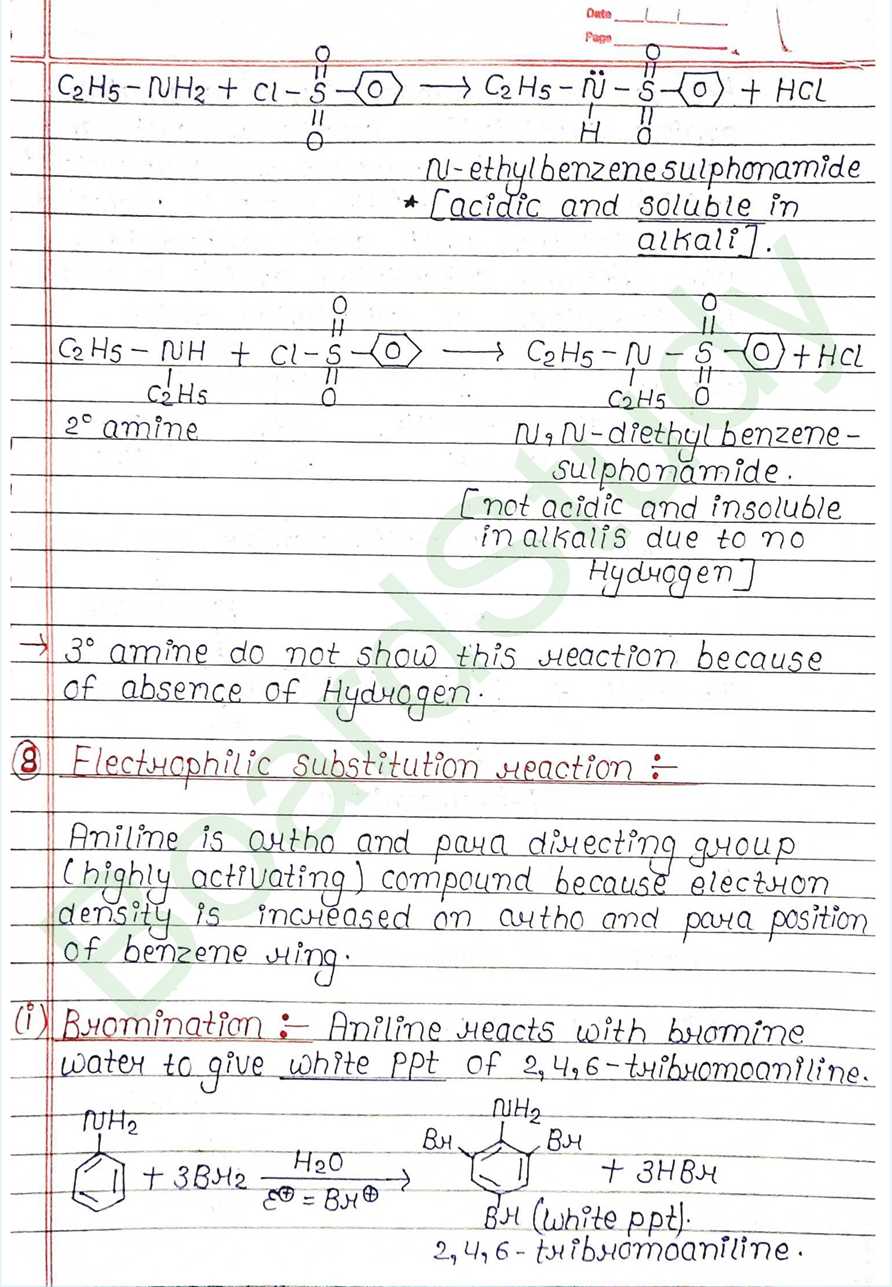 Date
Page
C2H5-NH2 + Cl-S- → C2H5-N̈-S- + HCl
O O
O H O
N-ethylbenzenesulphonamide
* [acidic and soluble in
alkali].
O O
C2H5-NH + Cl-S- → C2H5-N-S- + HCl
C2H5 O C2H5 O
2° amine
N,N-diethylbenzene-
sulphonamide.
[not acidic and insoluble
in alkalis due to no
Hydrogen]
→ 3° amine do not show this reaction because
of absence of Hydrogen.
8 Electrophilic substitution reaction :-
Aniline is ortho and para directing group
(highly activating) compound because electron
density is increased on ortho and para position
of benzene ring.
(i) Bromination :- Aniline reacts with bromine
water to give white ppt of 2,4,6-tribromoaniline.
NH2 NH2
Br Br
+ 3Br2 H2O → + 3HBr
E⊕ = Br⊕
Br (white ppt).
2,4,6-tribromoaniline.
BoardStudy